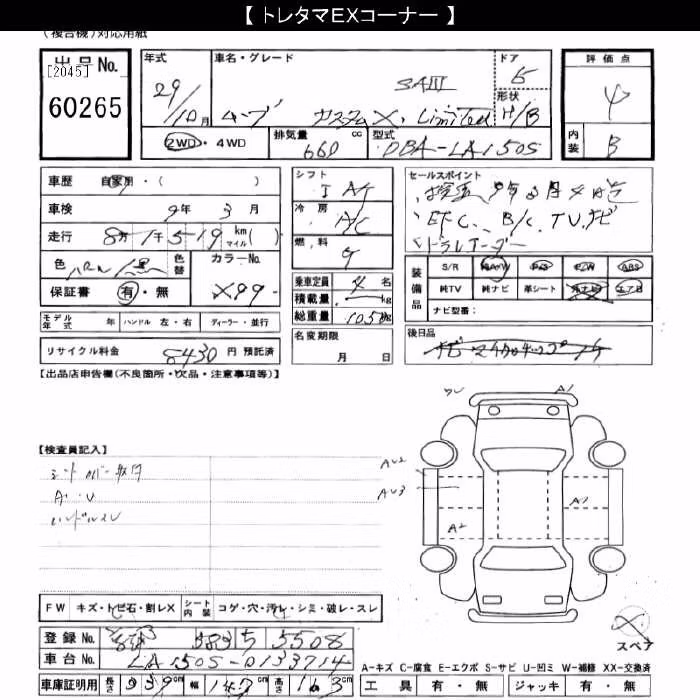 【 トレタマEXコーナー 】
(複合機)対応用紙
出品No.
[2045]
60265
年式
29/10月
車名・グレード
ムーヴ カスタム X, Limited SAIII
ドア
5
形状
H/B
評価点
4
内装
B
2WD・4WD
排気量 660 cc
型式 DBA-LA150S
車歴 自家用・( )
車検 9年 3月
走行 8万1千519 km マイル( )
色 パール/黒
色替
カラーNo.
X99
保証書 有・無
シフト
IAT
冷房
A/C
燃料
G
乗車定員 4名
積載量 kg
総重量 kg
セールスポイント
ETC、B/C、TV、ナビ
ドラレコーダー
装備品
S/R PAW P/S PZW ABS
純TV 純ナビ 革シート エアB
ナビ型番:
モデル年式 年 ハンドル 左・右 ディーラー・並行
リサイクル料金 8430 円 預託済
名変期限
月 日
後日品
【出品店申告欄(不良箇所・欠品・注意事項等)】
【検査員記入】
シートカバー取付
A・U
ハンドルスレ
A1
AU2
AU3
A2
A1
FW キズ・トビ石・割レX シート内装 コゲ・穴・汚レ・シミ・破レ・スレ
登録No. 583 ち 5508
車台No. LA150S-0133714
車庫証明用 長さ 339cm 幅 147cm 高さ 163cm
スペア
A-キズ C-腐食 E-エクボ S-サビ U-凹ミ W-補修 XX-交換済
工具 有・無 ジャッキ 有・無